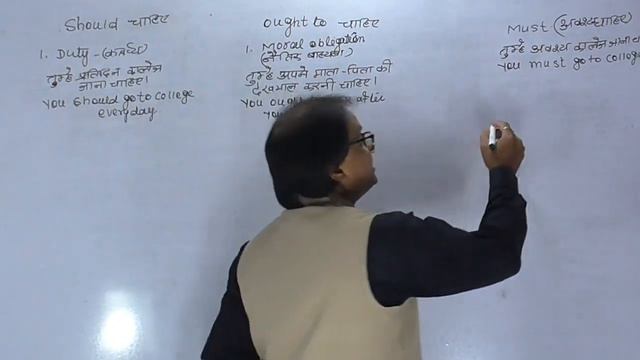 Should चाहिए
1. Duty - (कर्तव्य)
तुम्हे प्रतिदिन कालेज
जाना चाहिए।
You should go to college
everyday
ought to चाहिए
1. Moral obligation
(नैतिक बाध्यता)
तुम्हे अपने माता-पिता की
देखभाल करनी चाहिए।
You ought
Must (अवश्य चाहिए)
तुम्हे अवश्य कालेज जाना
You must go to college